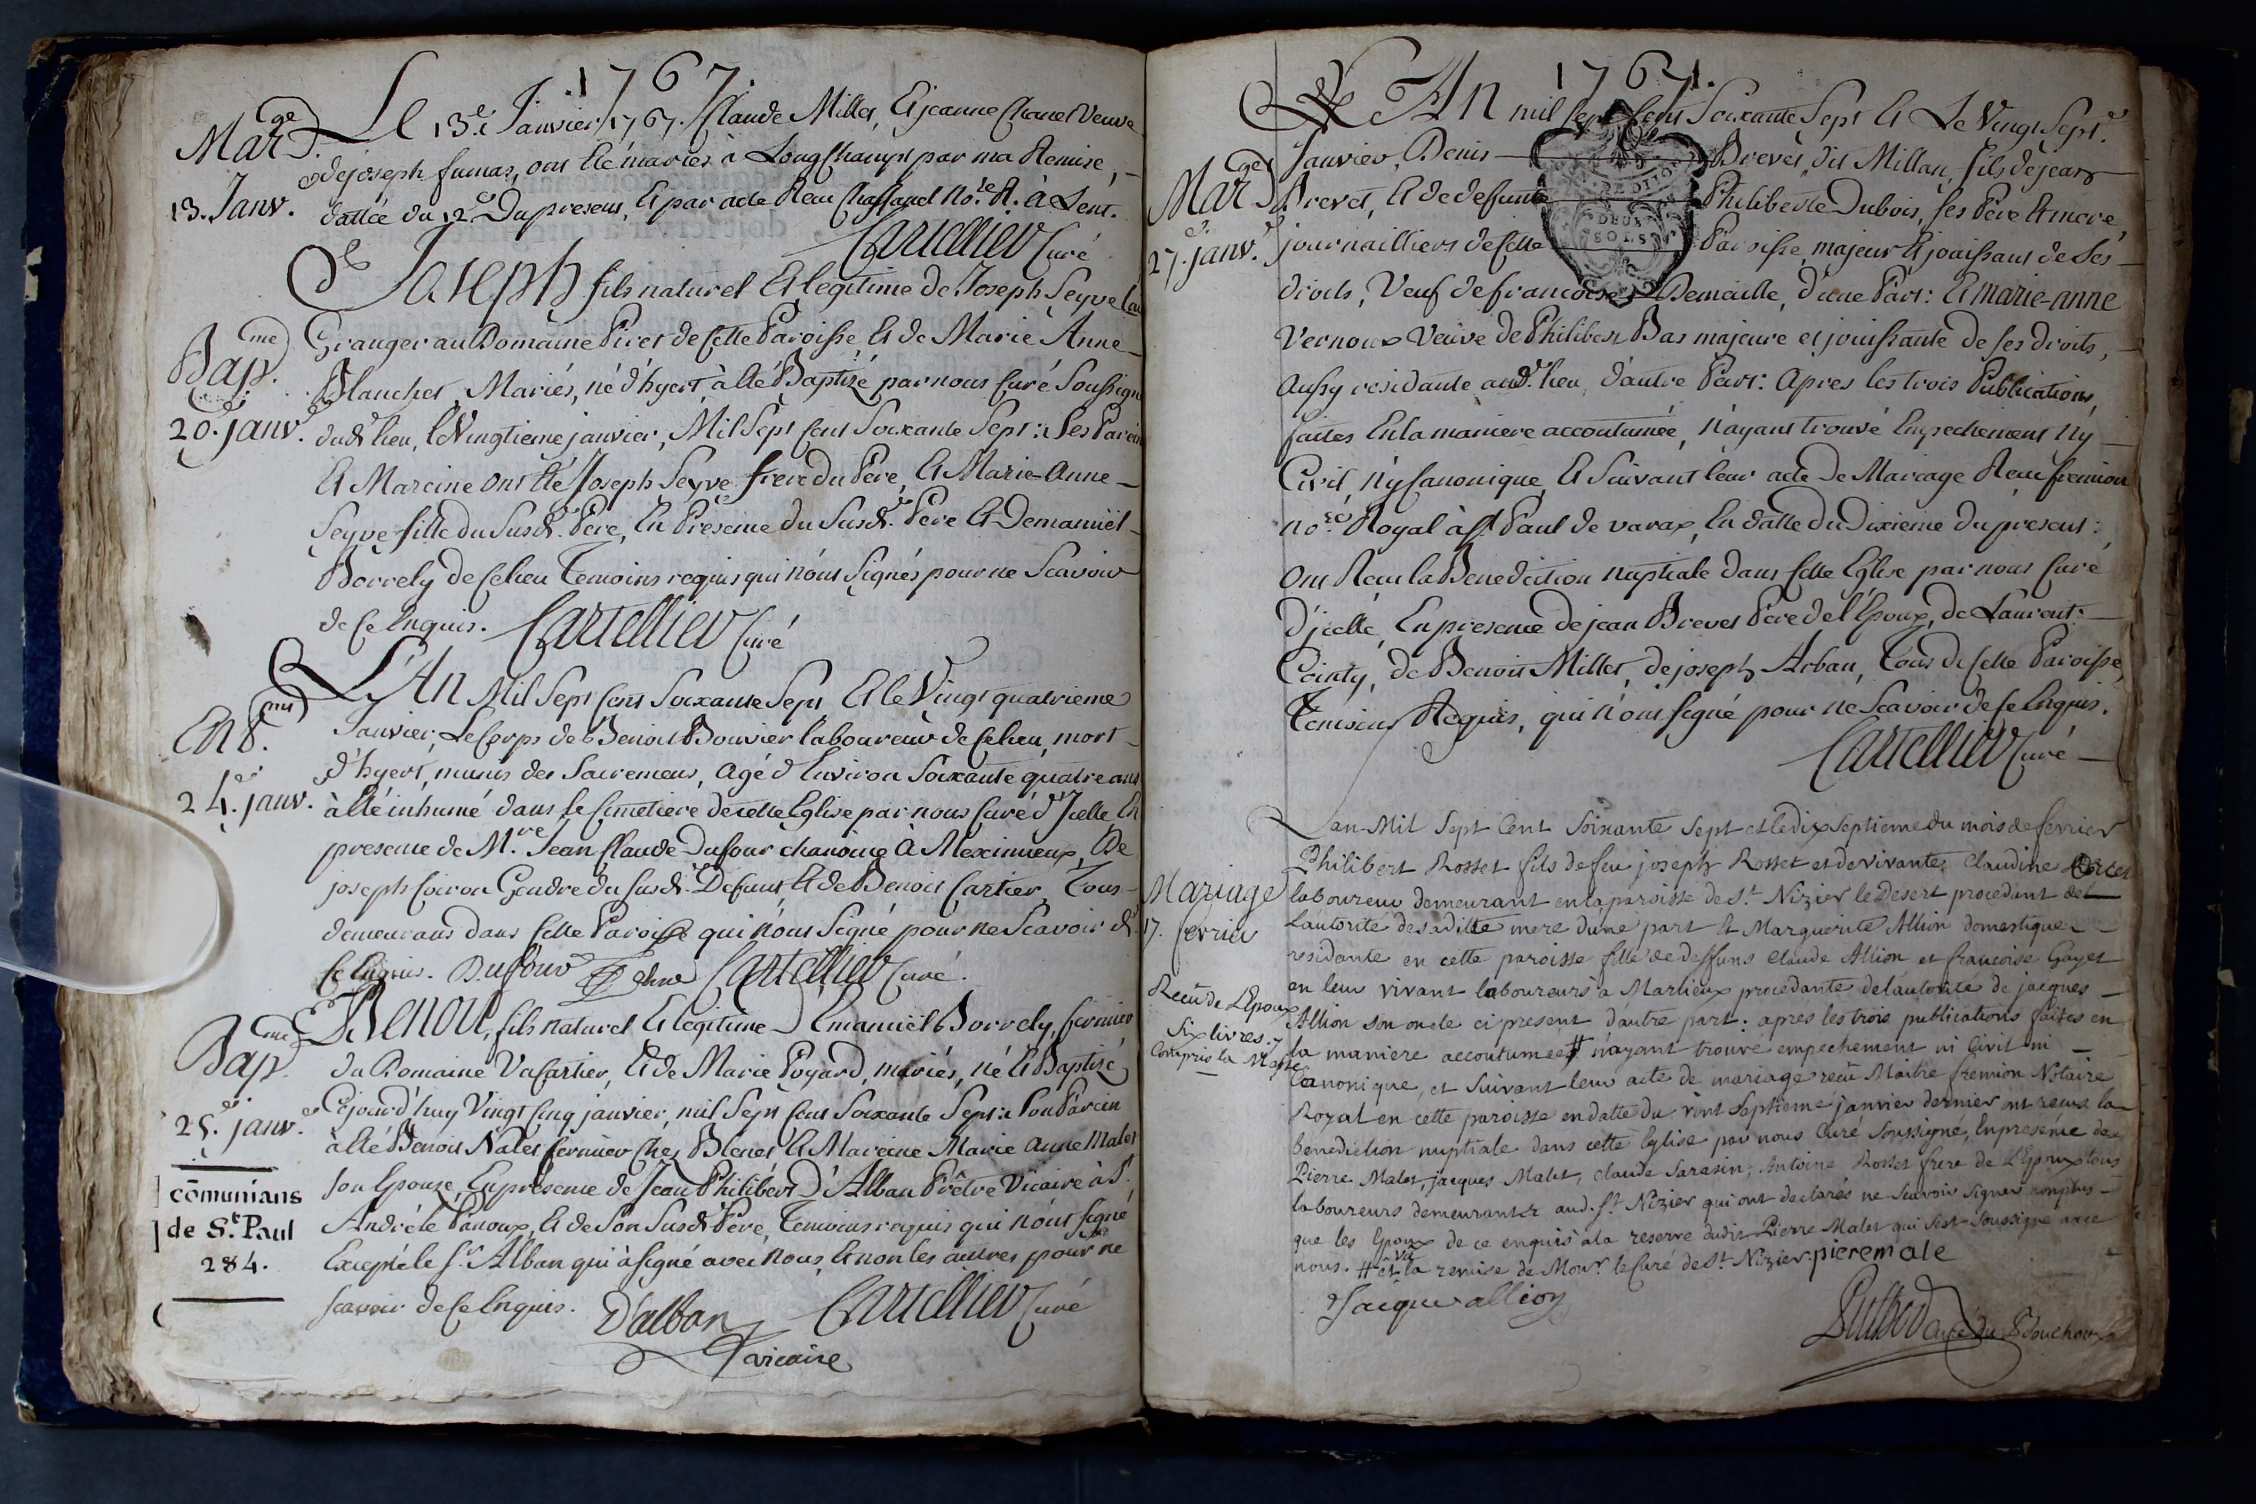 1767.
Mar.ge
13. Janv.
Le 13.e Janvier 1767. Claude Millet, Et jeanne Chanel Veuve
de joseph fumas, ont Eté mariés à LongChamps par ma Remise,
dattée du 12.e Du present, Et par acte Reçu Chaffaud No.re R. à Lent.
Cartellier Curé
Bap.me
20.e janv.
Joseph fils naturel Et legitime de Joseph Seyve
Granger au Domaine Piret de Cette Paroisse Et de Marie Anne
Blanchet, Mariés, né d'hyert, à Eté Baptizé par nous Curé Soussigné
dud. lieu, le Vingtieme janvier, Mil Sept Cent Soixante Sept: Ses Parein
Et Mareine ont Eté Joseph Seyve frere du Pere, Et Marie Anne
Seyve fille du Susd. Pere, En Presence du Susd. Pere Et Demanuël
Borrely de Ce lieu Temoins requis qui n'ont Signés pour ne Scavoir
de Ce Enquis. Cartellier Curé
Ent.
24.e janv.
L'An Mil Sept Cent Soixante Sept Et le Vingt quatrieme
Janvier, Le Corps de Benoit Bouvier laboureur de Ce lieu, mort
d'hyert, munis des Sacremens, Agé d'Environ Soixante quatre ans
à Eté inhumé dans le Cimetiere de cette Eglise par nous Curé d'Icelle, En
presence de M.re Jean Claude Dufour chanoine à Meximieux, De
joseph Coiron Gendre du susd. Defunt, Et de Benoit Cartier, Tous
demeurans dans Cette Paroisse qui n'ont Signé pour ne Scavoir d
Ce Enquis. Dufour Cartellier Curé.
Bap.me
25.e janv.
Benoit, fils naturel Et legitime D'Emanuël Borrely, fermier
du Domaine Vacartier, Et de Marie Poyard, mariés, né Et Baptizé
Cejourd'huy Vingt Cinq janvier, mil Sept Cent Soixante Sept: Son Parein
à Eté Benoit Nalet fermier Chez Blenet Et Mareine Marie Anne Malet
son Epouse, En presence de Jean Philibert D'Alban Prêtre Vicaire à S.t
André le Panoux, Et de Son Susd. Pere, Temoins requis qui n'ont signé
Excepté le S.r Alban qui à signé avec Nous, Et non les autres pour ne
scavoir de Ce Enquis. D'alban Cartellier Curé
vicaire
cōmunians
de S.t Paul
284.
1767.
Mar.ge
27.e janv.
L'An mil Sept Cent Soixante Sept Et Le Vingt Sept.e
Janvier, Denis Brevet, dit Millan, fils de jean
Brevet, Et de deffunte Philiberte Dubois, ses Pere Et mere,
journailliers de Cette Paroisse, majeur Et jouissant de Ses
droits, Veuf de francoise Demaille, d'une Part: Et Marie-anne
Vernoux Veuve de Philibert Bas majeure et jouissante de ses droits,
Aussy residante aud. lieu, d'autre Part: Apres les trois Publications,
faites En la maniere accoutumée, N'ayant trouvé Empechement Ny
Civil, Ny Canonique, Et Suivant leur acte De Mariage Reçu fremion
No.re Royal à S.t Paul de varax, En datte du Dixieme du present:
Ont Reçu la Benediction Nuptiale dans Cette Eglise par nous Curé
D'jcelle, En presence de jean Brevet Pere de l'Epoux, de Laurent
Cointy, de Benoit Millet, de joseph Arban, Tous de Cette Paroisse,
Temoins Requis, qui n'ont signé pour ne Scavoir de Ce Enquis.
Cartellier Curé
Mariage
17. fevrier
Reçu de L'Epoux
Six livres.
Compris la Messe
L'an Mil Sept Cent Soixante Sept et le dix Septieme du mois de fevrier
Philibert Rosset fils de feu joseph Rosset et de vivante Claudine
laboureur demeurant en la paroisse de S.t Nizier le Desert procedant de
L'autorité de sa ditte mere d'une part Et Marguerite Allion domestique
residante en cette paroisse fille de deffuns Claude Allion et francoise Gayet
en leur vivant laboureurs a Marlieux procedante de l'autorité de jacques
Allion son oncle ci present d'autre part: apres les trois publications faites en
la maniere accoutumée # n'ayant trouvé empechement ni Civil ni
Canonique, et Suivant leur acte de mariage reçu Maitre fremion Notaire
Royal en cette paroisse en datte du vint Septieme janvier dernier ont reçus la
Benediction nuptiale dans cette Eglise par nous Curé Soussigné, En presence de
Pierre Malet, jacques Malet, Claude Sarasin, Antoine Rosset frere de L'Epoux tous
laboureurs demeurants aud. S.t Nizier qui ont declarés ne Scavoir Signer non plus
que les Epoux de ce enquis a la reserve dudit Pierre Malet qui s'est Soussigné avec
nous. # et vû la remise de Mons.r le Curé de S.t Nizier. piere male
Jacque allion
curé du Plouchoux